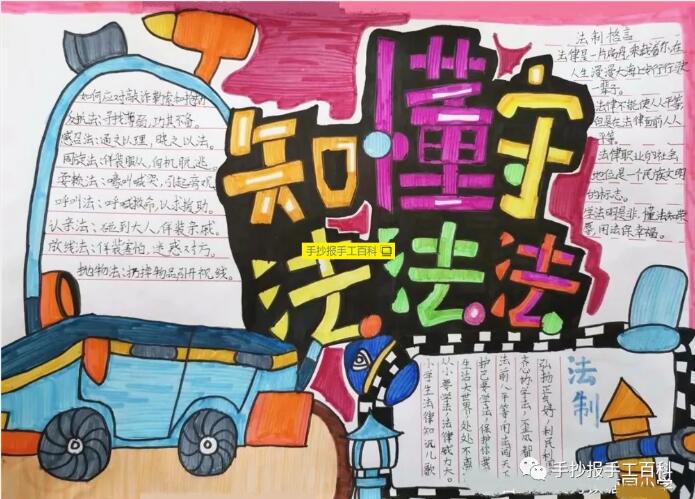 知 懂 守
法 法 法
手抄报手工百科
如何应对敲诈勒索和抢劫
反抗法：寻找薄弱，攻其不备。
感召法：通之以理，晓之以法。
周旋法：佯装服从，伺机脱逃。
耍赖法：嚎叫哭喊，引起旁观。
呼叫法：呼喊救命，以求援助。
认亲法：碰到大人，佯装亲戚。
放线法：佯装害怕，迷惑对方。
抛物法：扔掉物品引开视线。
法制格言
法律是一片
人生漫漫大海上
一辈子。
法律不能使人人平等，
但是在法律面前人人
平等。
法律职业的社会
地位是一个民族文明
的标志。
学法明是非，懂法知荣
辱，用法保幸福。
法制
弘扬正气好，利民利
齐心协学法，
法前人平等，用法闯天下
护己要学法，保护你我
生活大世界，处处不离
从小要学法，法律威力大。
小学生法律知识儿歌
手抄报手工百科